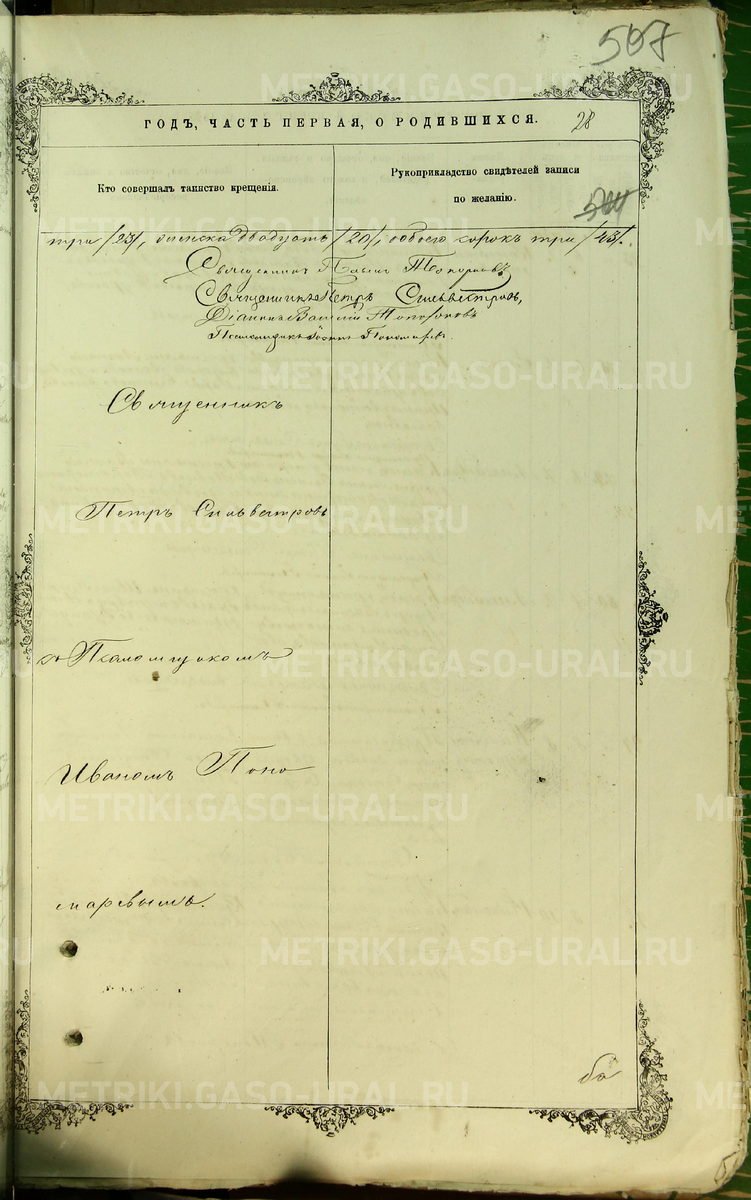 507
ГОДЪ, ЧАСТЬ ПЕРВАЯ, О РОДИВШИХСЯ.
28
Кто совершалъ таинство крещенія.
Рукоприкладство свидѣтелей записи
по желанію.
504
три /23/, женска двадцать /20/, обоего сорокъ три /43/.
Священникъ Павелъ Топорковъ
Священникъ Петръ Сильвестровъ,
Діаконъ Василій Топорковъ
Псаломщикъ Іоаннъ Пономаревъ.
Священникъ
Петръ Сильвестровъ
съ Псаломщикомъ
Иваномъ Поно
маревымъ.
METRIKI.GASO-URAL.RU